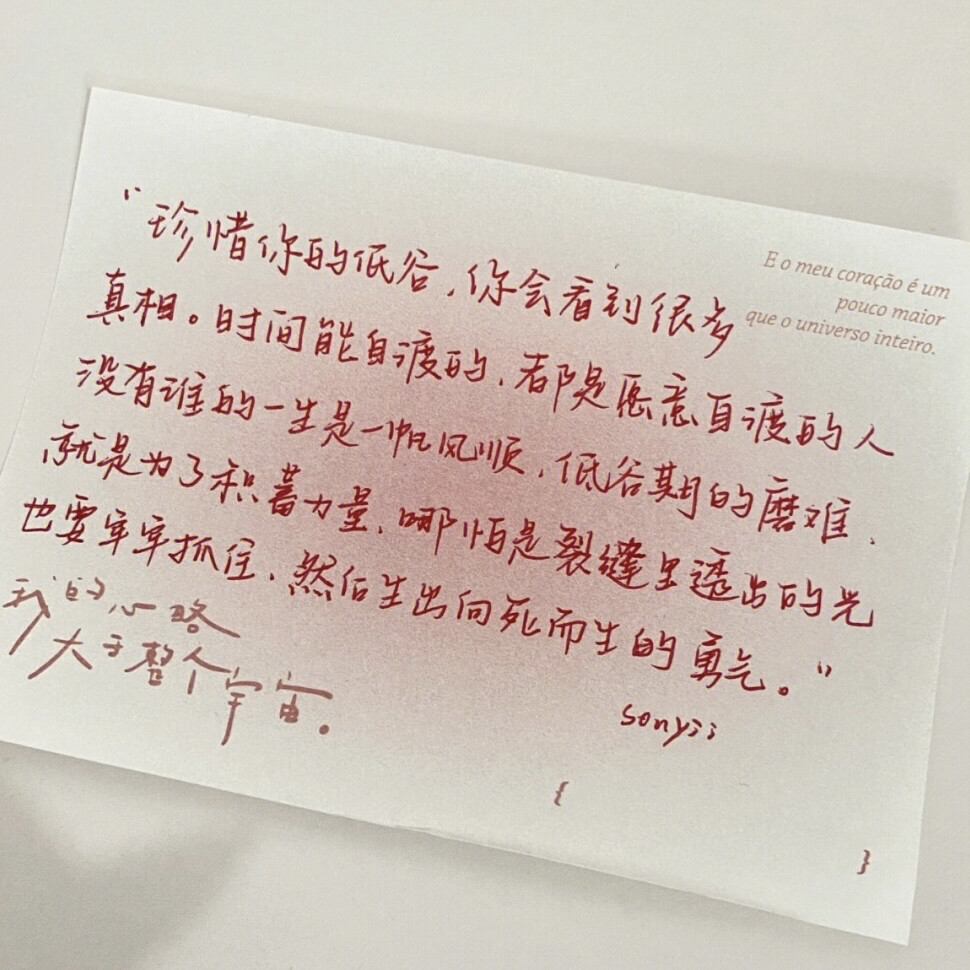 “珍惜你的低谷,你会看到很多
真相。时间能自渡的,都是愿意自渡的人
没有谁的一生是一帆风顺,低谷期的磨难,
就是为了积蓄力量,哪怕是裂缝里透出的光
也要牢牢抓住,然后生出向死而生的勇气。”
sonyii
E o meu coração é um
pouco maior
que o universo inteiro.
我的心略
大于整个宇宙。
{
}